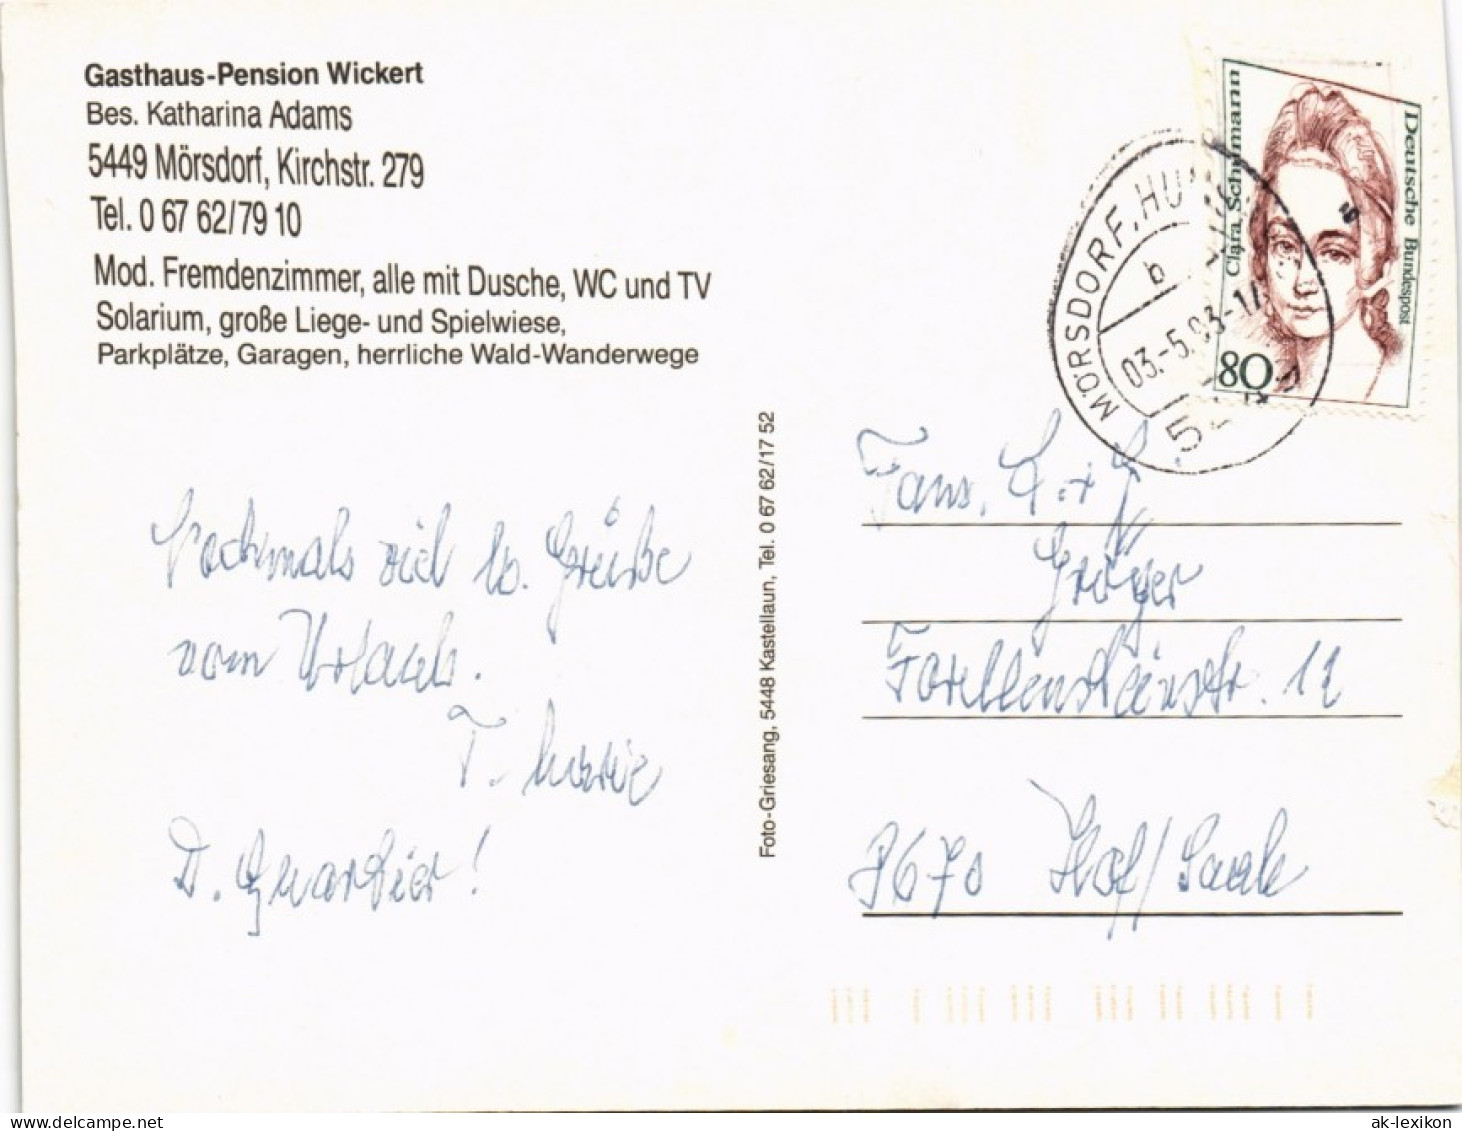 Gasthaus-Pension Wickert
Bes. Katharina Adams
5449 Mörsdorf, Kirchstr. 279
Tel. 0 67 62/79 10
Mod. Fremdenzimmer, alle mit Dusche, WC und TV
Solarium, große Liege- und Spielwiese,
Parkplätze, Garagen, herrliche Wald-Wanderwege
Nochmals viel lb. Grüße
vom Urlaub.
T.
D. Quartier!
Foto-Griesang, 5448 Kastellaun, Tel. 0 67 62/17 52
Clara Schumann
Deutsche Bundespost
80
MÖRSDORF, HU
b
03.-5.93-17
5
Fam.
Gröger
Forellensteinstr. 11
8670 Hof/Saale
www.delcampe.net
ak-lexikon